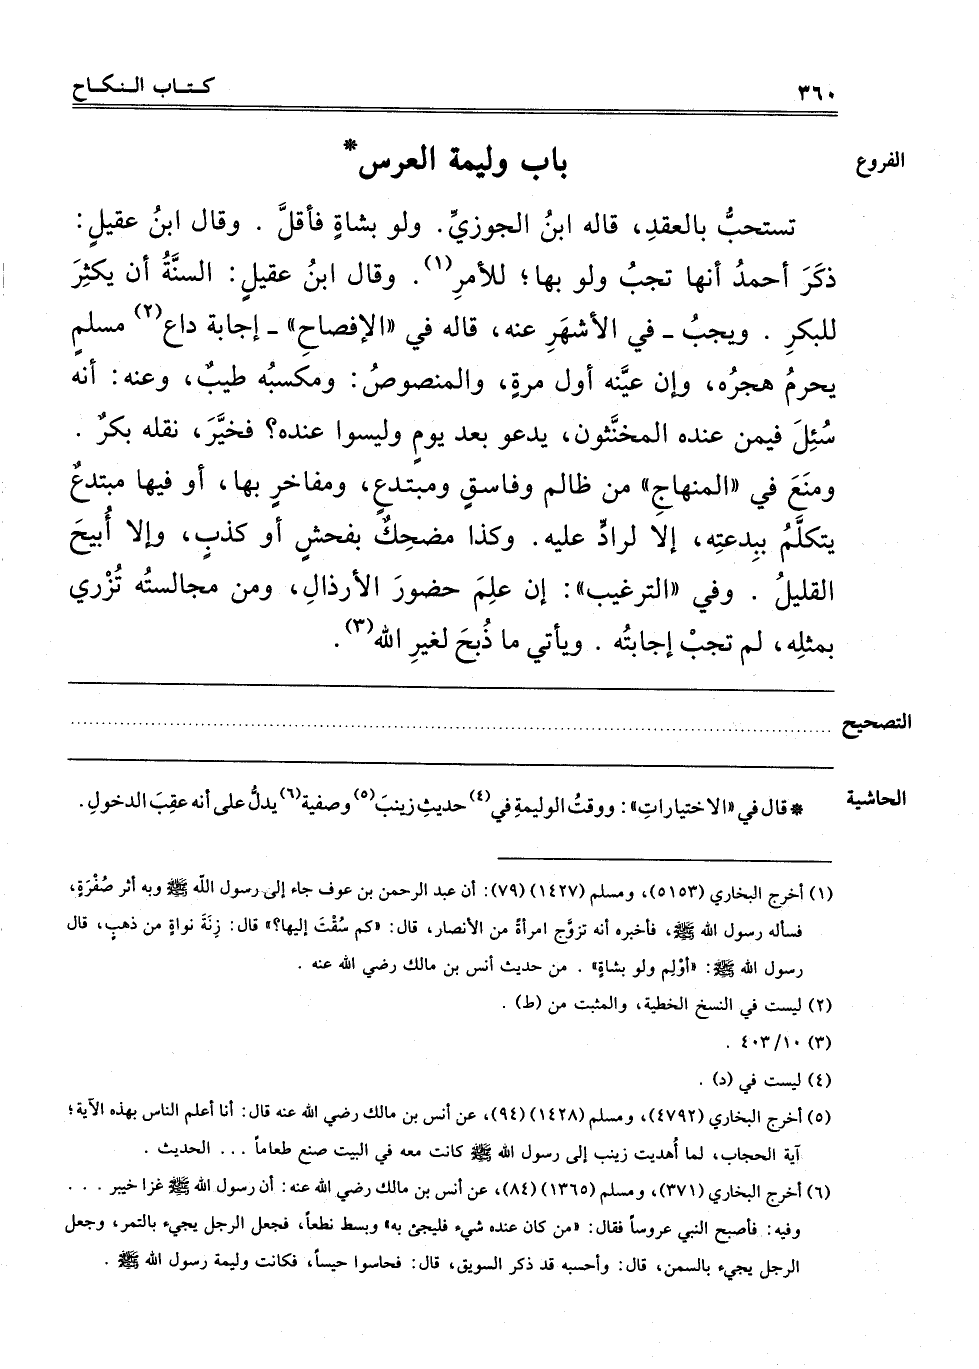 ٣٦٠ كتاب النكاح
الفروع
باب وليمة العرس*
تستحبُّ بالعقدِ، قاله ابنُ الجوزيِّ. ولو بشاةٍ فأقلَّ . وقال ابنُ عقيلٍ:
ذكَرَ أحمدُ أنها تجبُ ولو بها؛ للأمرِ(١). وقال ابنُ عقيلٍ: السنَّةُ أن يكثِرَ
للبكرِ . ويجبُ ـ في الأشهَرِ عنه، قاله في «الإفصاحِ» ـ إجابة داع(٢) مسلمٍ
يحرمُ هجرُه، وإن عيَّنه أول مرةٍ، والمنصوصُ: ومكسبُه طيبٌ، وعنه: أنه
سُئِلَ فيمن عنده المخنَّثون، يدعو بعد يومٍ وليسوا عنده؟ فخيَّرَ، نقله بكرٌ .
ومنَعَ في «المنهاجِ» من ظالم وفاسقٍ ومبتدعٍ، ومفاخرٍ بها، أو فيها مبتدعٌ
يتكلَّمُ ببِدعتِه، إلا لرادٍّ عليه. وكذا مضحِكٌ بفحشٍ أو كذبٍ، وإلا أُبيحَ
القليلُ . وفي «الترغيب»: إن علِمَ حضورَ الأرذالِ، ومن مجالستُه تُزْري
بمثلِه، لم تجبْ إجابتُه . ويأتي ما ذُبحَ لغيرِ الله(٣).
التصحيح
الحاشية
* قال في «الاختياراتِ»: ووقتُ الوليمةِ في(٤) حديثِ زينبَ(٥) وصفية(٦) يدلُّ على أنه عقِبَ الدخولِ.
(١) أخرج البخاري (٥١٥٣)، ومسلم (١٤٢٧) (٧٩): أن عبد الرحمن بن عوف جاء إلى رسول اللّه ﷺ وبه أثر صُفْرَةٍ،
فسأله رسول الله ﷺ، فأخبره أنه تزوَّج امرأةً من الأنصار، قال: «كم سُقْتَ إليها؟» قال: زِنَةَ نواةٍ من ذهبٍ، قال
رسول الله ﷺ: «أوْلِم ولو بشاةٍ» . من حديث أنس بن مالك رضي الله عنه .
(٢) ليست في النسخ الخطية، والمثبت من (ط) .
(٣) ٤٠٣/١٠ .
(٤) ليست في (د) .
(٥) أخرج البخاري (٤٧٩٢)، ومسلم (١٤٢٨) (٩٤)، عن أنس بن مالك رضي الله عنه قال: أنا أعلم الناس بهذه الآية؛
آية الحجاب، لما أُهديت زينب إلى رسول الله ﷺ كانت معه في البيت صنع طعاماً ... الحديث .
(٦) أخرج البخاري (٣٧١)، ومسلم (١٣٦٥) (٨٤)، عن أنس بن مالك رضي الله عنه: أن رسول الله ﷺ غزا خيبر ...
وفيه: فأصبح النبي عروساً فقال: «من كان عنده شيء فليجئ به» وبسط نطعاً، فجعل الرجل يجيء بالتمر، وجعل
الرجل يجيء بالسمن، قال: وأحسبه قد ذكر السويق، قال: فحاسوا حيساً، فكانت وليمة رسول الله ﷺ .